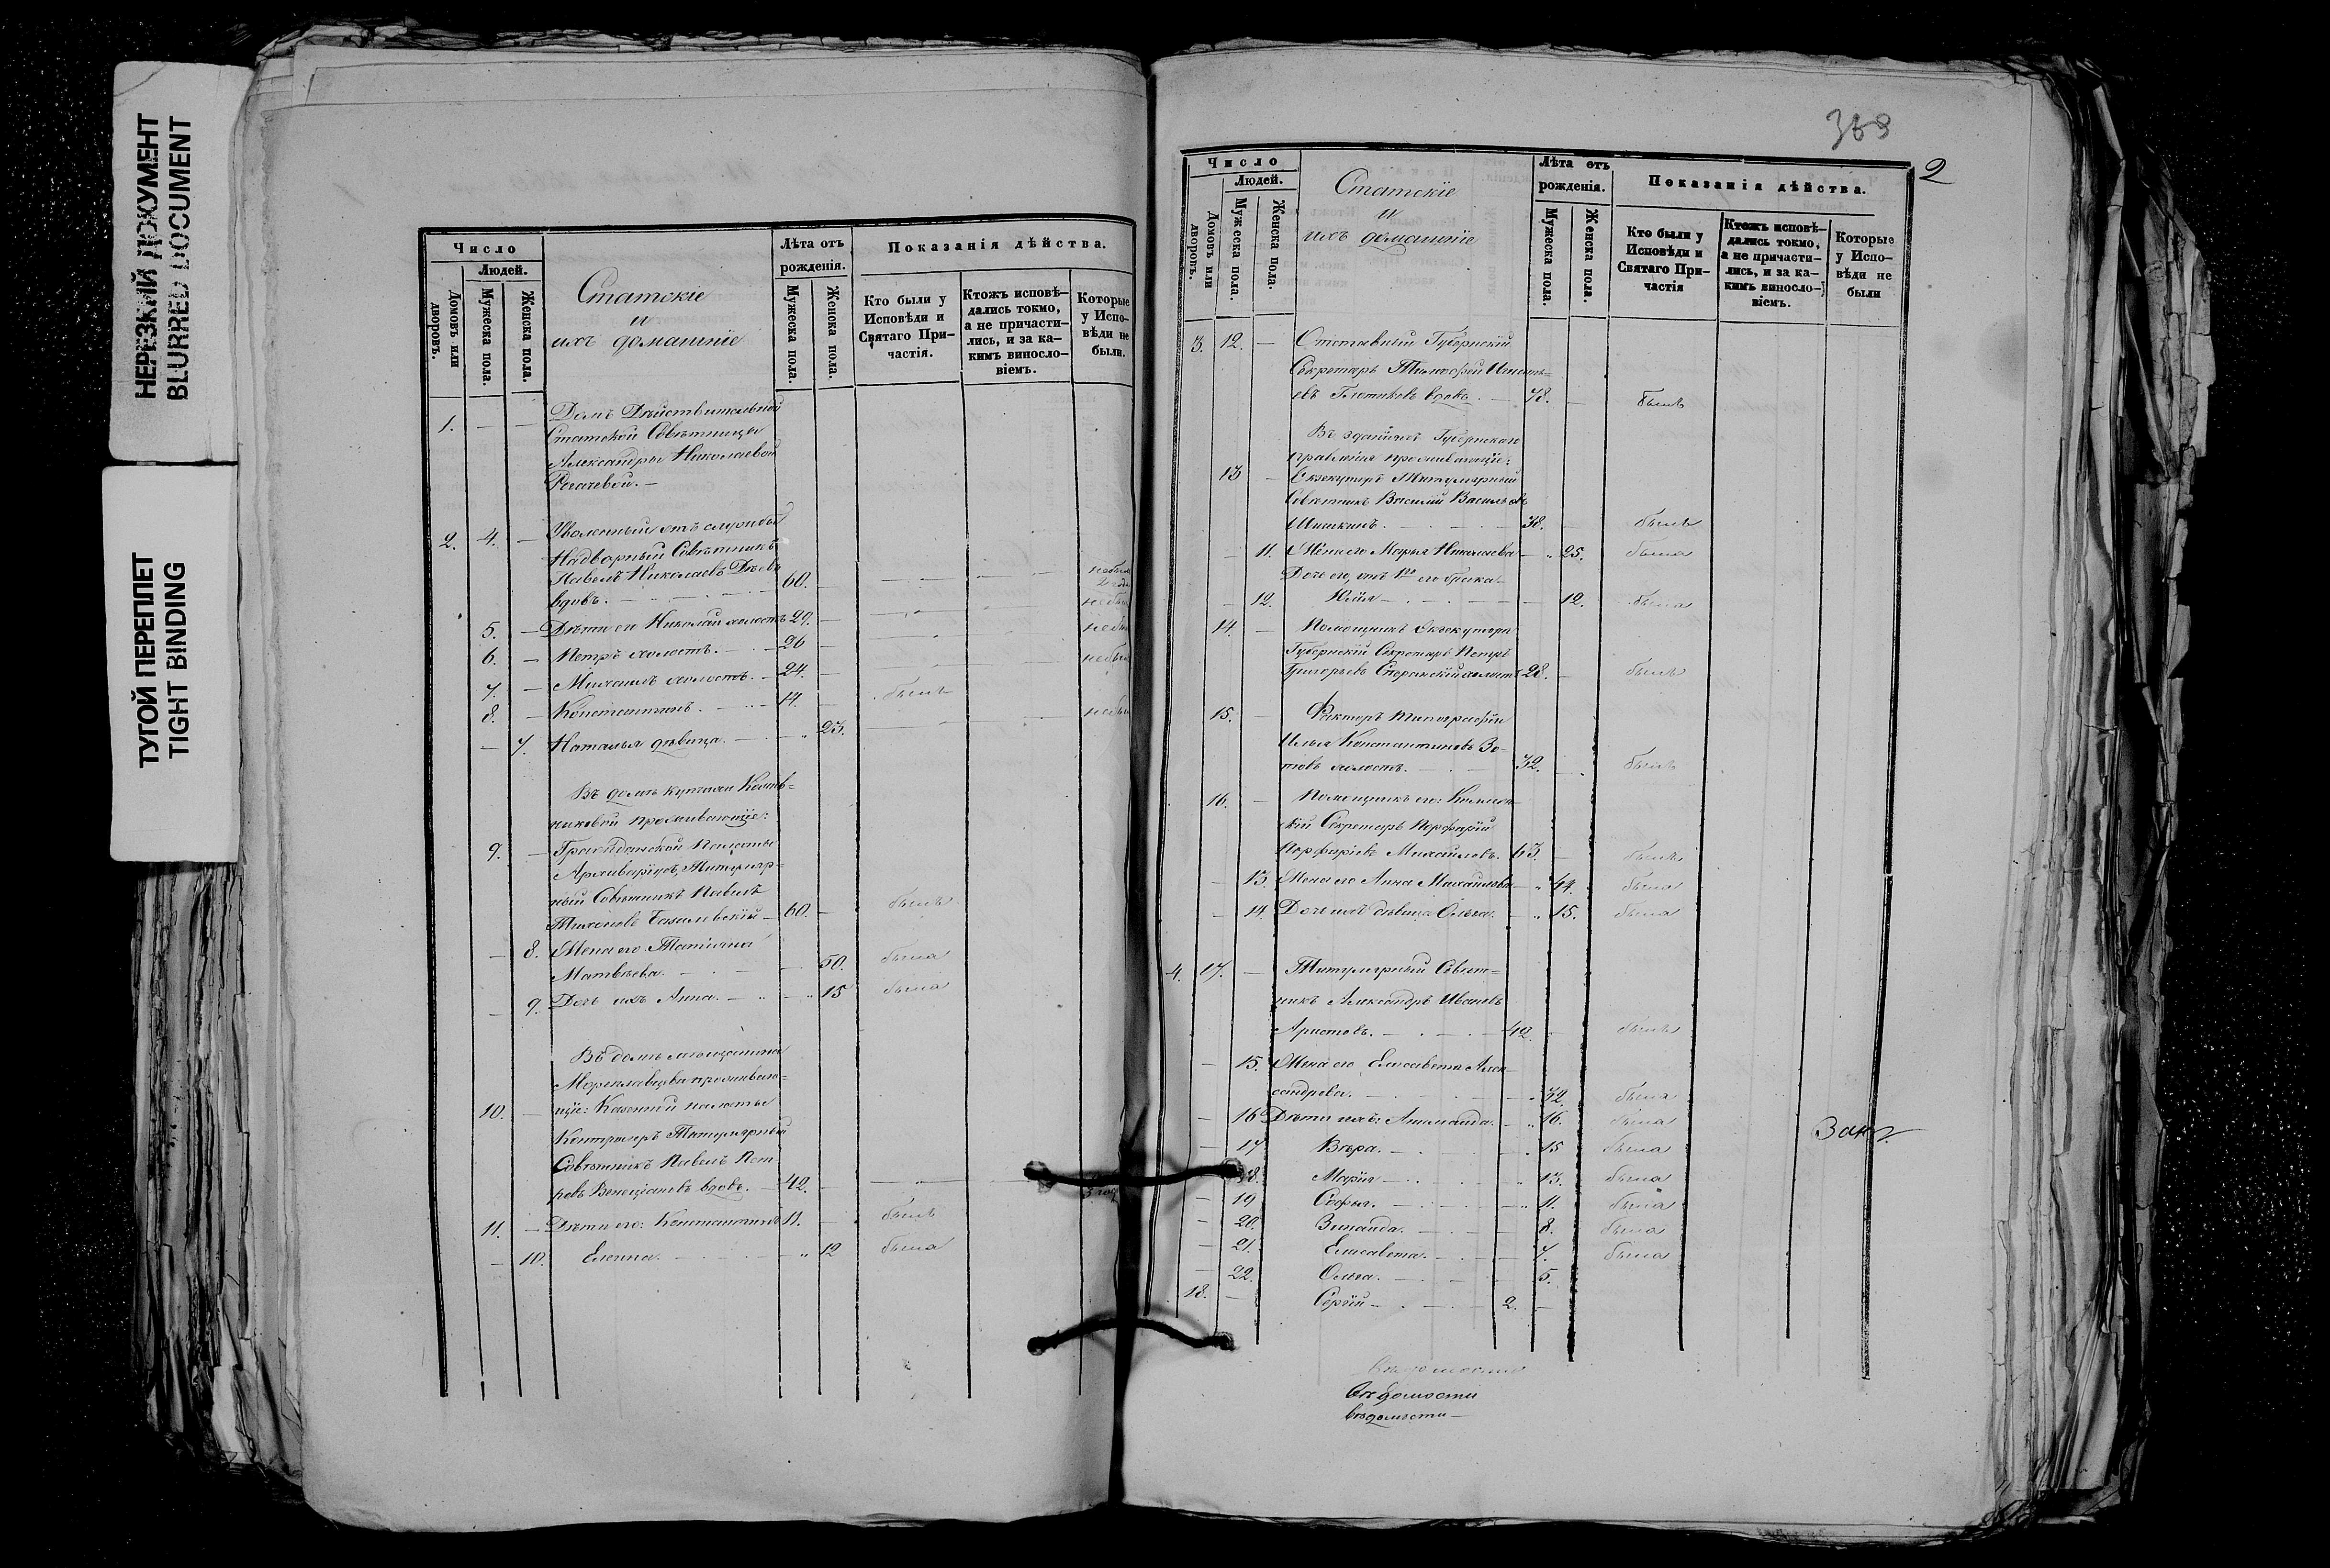 НЕРЕЗКИЙ ДОКУМЕНТ
BLURRED DOCUMENT
ТУГОЙ ПЕРЕПЛЕТ
TIGHT BINDING
Число
Людей.
Домовъ или дворовъ.
Мужеска пола.
Женска пола.
Статскіе
и
ихъ домашніе
Лѣта отъ рожденія.
Мужеска пола.
Женска пола.
Показанія дѣйства.
Кто были у Исповѣди и Святаго Причастія.
Ктожъ исповѣдались токмо, а не причастились, и за какимъ винословіемъ.
Которые у Исповѣди не были.
1. — — Домъ Дѣйствительной
Статской Совѣтницы
Александры Николаевой
Рогачевой. —
2. 4. — Уволенный отъ службы
Надворный Совѣтникъ
Павелъ Николаевъ
вдовъ. 60.
5. — Дѣти его Николай холостъ 29.
6. — Петръ холостъ. 26
7. — Михаилъ холостъ. 24.
8. — Константинъ. 14. былъ
— 7. Наталья дѣвица. 23.
Въ домѣ купчихи
проживающіе:
9. — Гражданской Палаты
Архиваріусъ, Титуляр=
ный Совѣтникъ Павелъ
Тихоновъ 60. былъ
— 8. Жена его Татіана
Матвѣева. 50. была
— 9. Дочь ихъ Анна. 15 была
Въ домѣ мѣщанина
проживаю=
10. — щіе: Казенной палаты
Контролеръ Титулярный
Совѣтникъ Павелъ Пет
ровъ вдовъ. 42.
11. — Дѣти его: Константинъ 11. былъ
— 10. Елена. 12 была
369
2
Число
Людей.
Домовъ или дворовъ.
Мужеска пола.
Женска пола.
Статскіе
и
ихъ домашніе
Лѣта отъ рожденія.
Мужеска пола.
Женска пола.
Показанія дѣйства.
Кто были у Исповѣди и Святаго Причастія
Ктожъ исповѣдались токмо, а не причастились, и за какимъ винословіемъ.
Которые у Исповѣди не были
3. 12. — Отставный Губернскій
Секретарь Тимофей
вдовъ. 78. былъ
Въ зданіи Губернскаго
правленія проживающіе:
13 — Екзекуторъ Титулярный
Совѣтникъ Василій Васильевъ
Шишкинъ. 38. былъ
— 11. Жена его Марья Николаева 25. была
Дочь его, отъ 1го его брака
— 12. Юлія 12. была
14. — Помощникъ Екзекутора
Губернскій Секретарь Петръ
Григорьевъ холостъ 28. былъ
15. — Факторъ Типографіи
Илья Константиновъ Зо=
товъ холостъ. 32. былъ
16. — Помощникъ его:
Секретарь Порфирій
Порфирьевъ Михайловъ. 63. былъ
— 13. Жена его Анна Михайлова 44. была
— 14. Дочь ихъ дѣвица Ольга. 15. была
4. 17. — Титулярный Совѣт=
никъ Александръ Ивановъ
Аристовъ. 42. былъ
— 15. Жена его Елисавета Алек
сандрова. 32. была
— 16 Дѣти ихъ: 16. была
— 17 Вѣра. 15 была
18. Марія 13. была
— 19 Софья. 11. была
— 20. Зинаида. 8. была
— 21. Елисавета. 7. была
— 22. Ольга. 5.
18. — Сергій 2. —
вѣдомости
вѣдомости